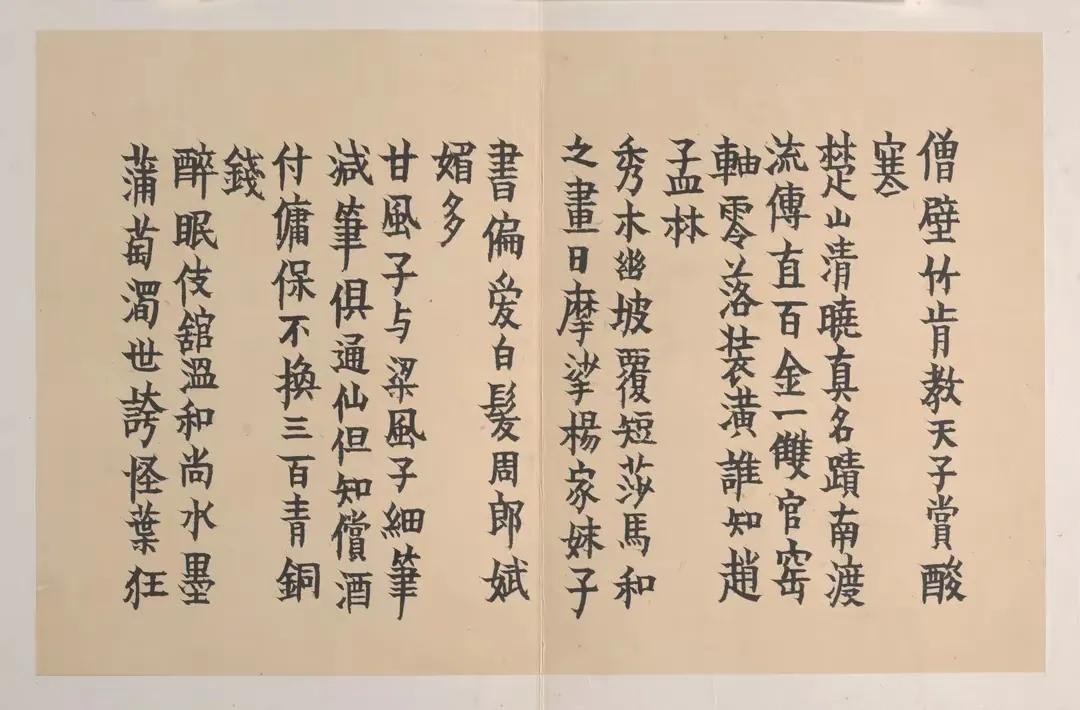 僧壁竹肯教天子賞酸
寒
楚山清曉真名蹟南渡
流傳直百金一雙官窑
軸零落装潢誰知趙
孟林
秀木幽坡覆短莎馬和
之畫日摩挲楊家妹子
書偏爱白髮周郎娬
媚多
甘風子与梁風子細筆
減筆俱通仙但知償酒
付傭保不換三百青銅
錢
醉眠伎舘溫和尚水墨
蒲萄濁世誇怪葉狂